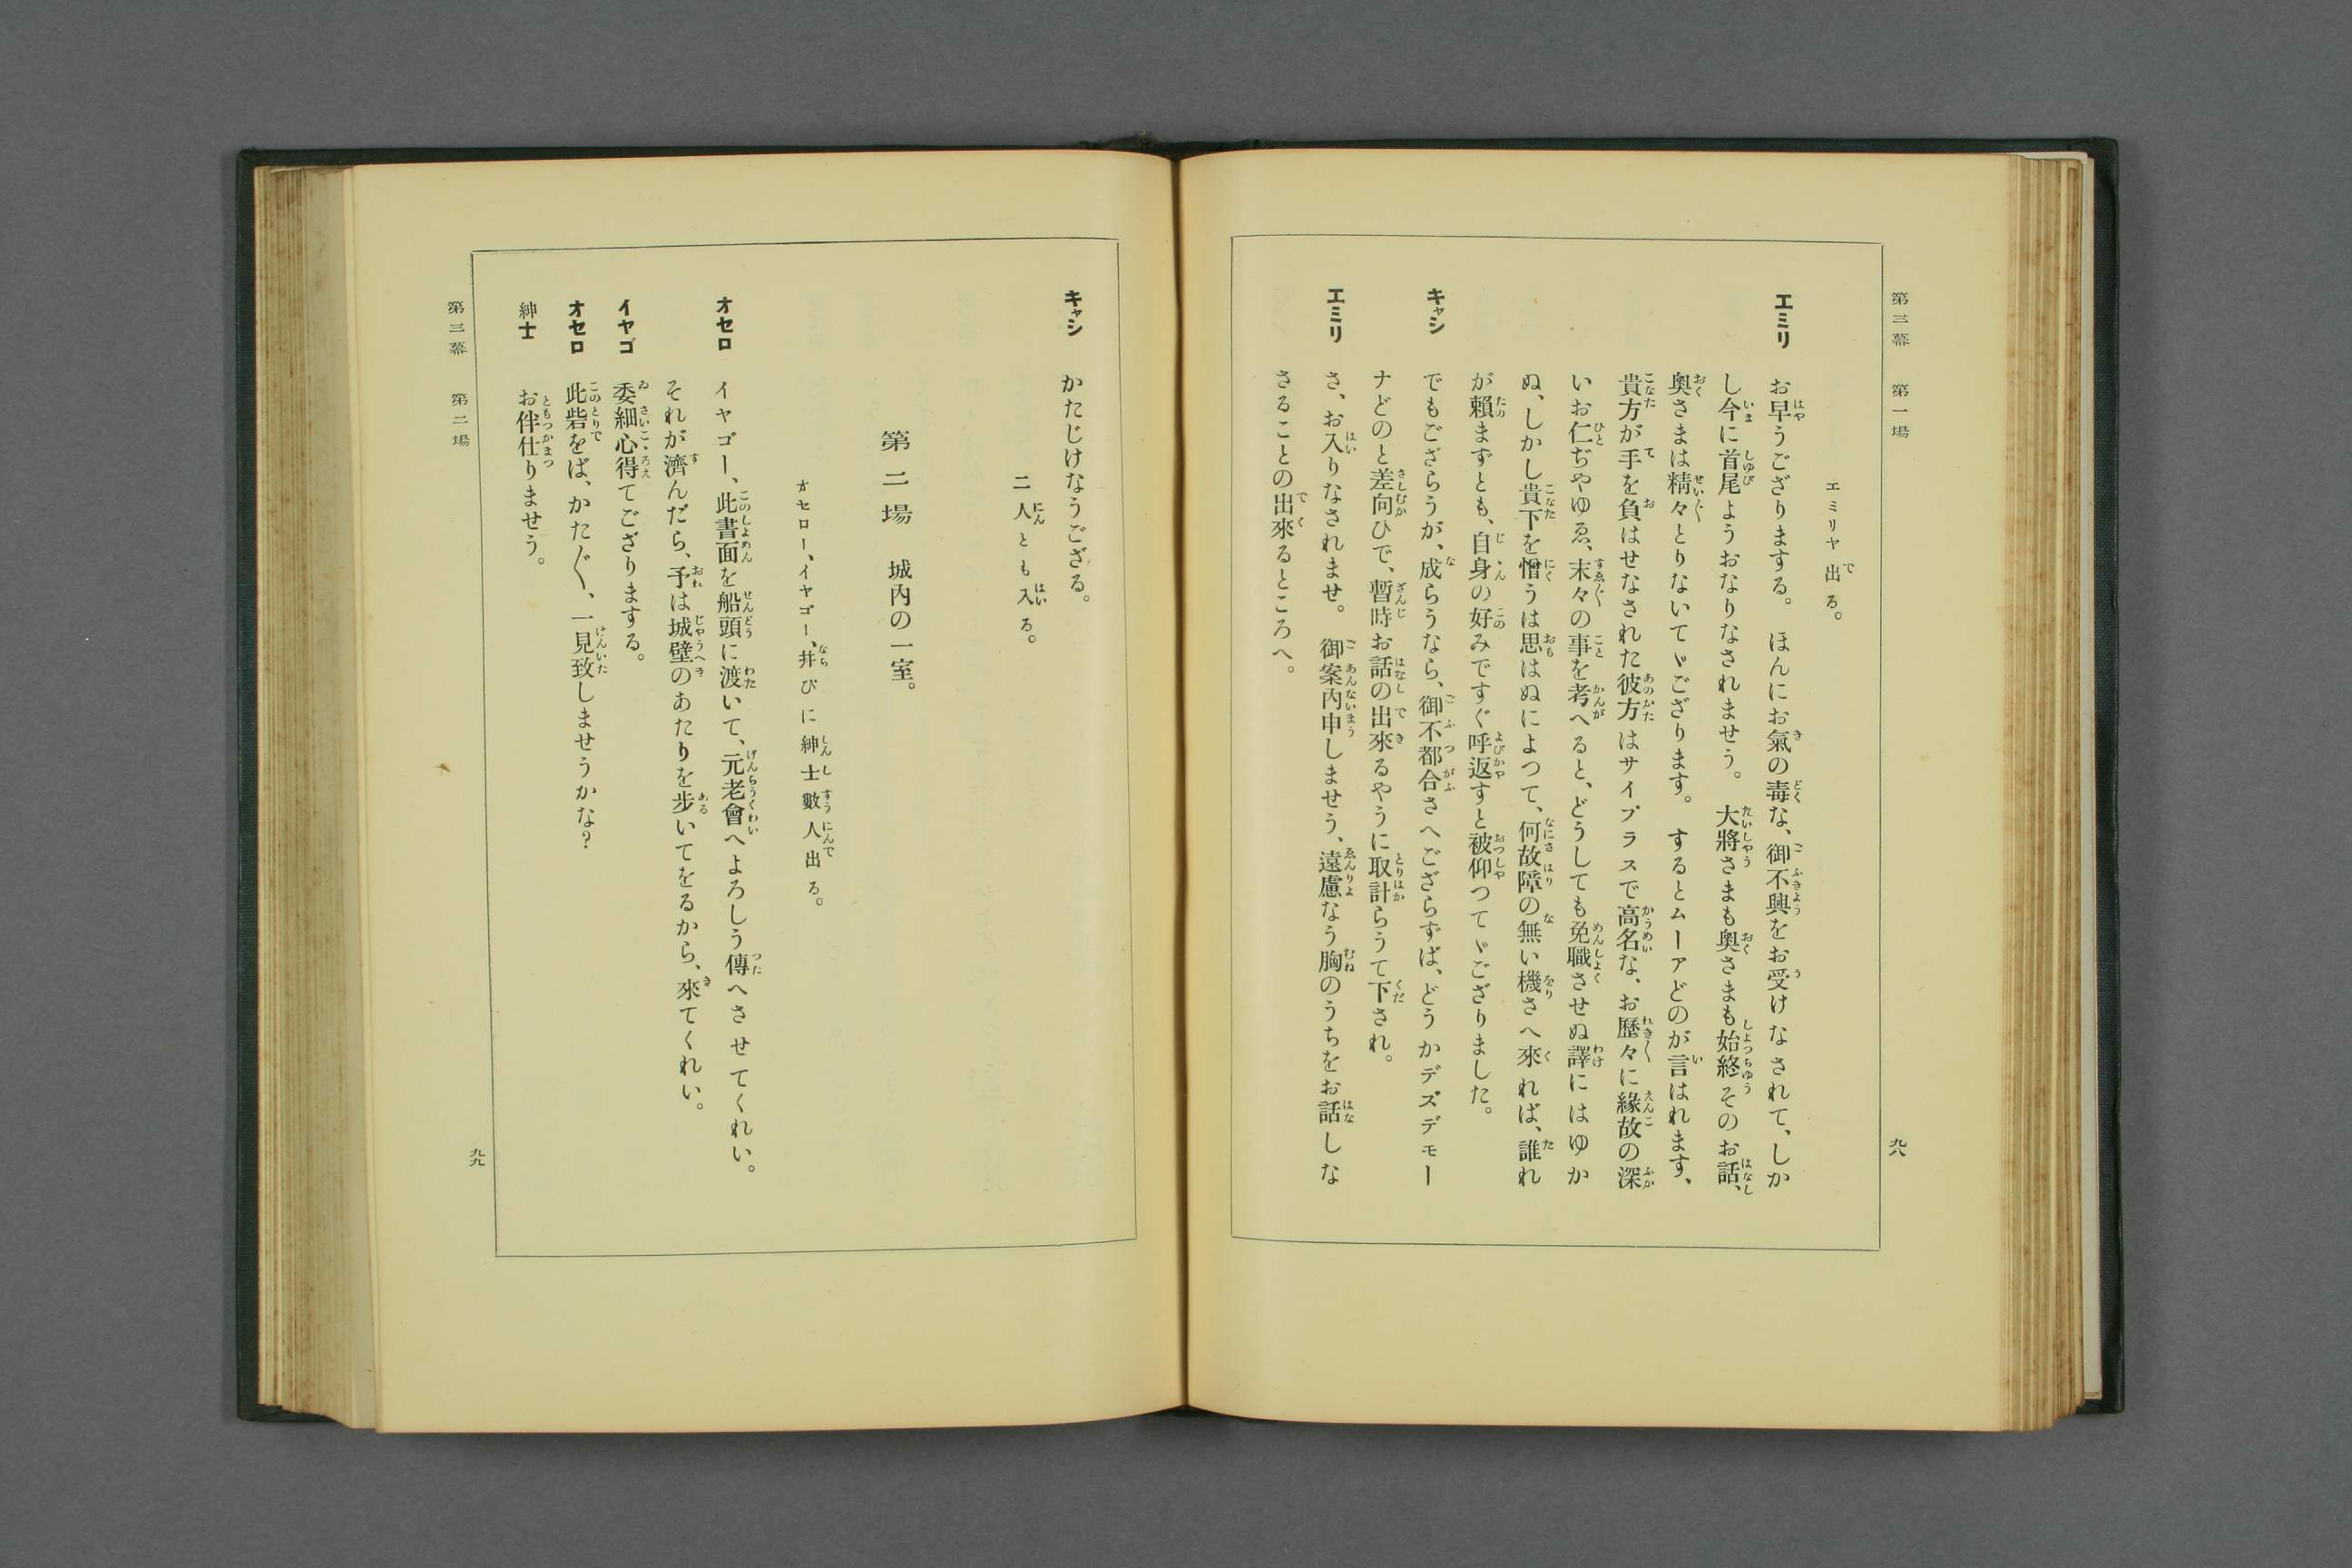 第三幕　第一場
エミリヤ出る。
エミリ　お早うござりまする。ほんにお氣の毒な、御不興をお受けなされて、しか
し今に首尾ようおなりなされませう。大將さまも奧さまも始終そのお話、
奧さまは精々とりないてゞござります。するとムーアどのが言はれます、
貴方が手を負はせなされた彼方はサイプラスで高名な、お歷々に緣故の深
いお仁ぢやゆゑ、末々の事を考へると、どうしても免職させぬ譯にはゆか
ぬ、しかし貴下を憎うは思はぬによつて、何故障の無い機さへ來れば、誰れ
が賴まずとも、自身の好みですぐ呼返すと被仰つてゞござりました。
キャシ　でもござらうが、成らうなら、御不都合さへござらずば、どうかデズデモー
ナどのと差向ひで、暫時お話の出來るやうに取計らうて下され。
エミリ　さ、お入りなされませ。御案內申しませう、遠慮なう胸のうちをお話しな
さることの出來るところへ。
九八
キャシ　かたじけなうござる。
二人とも入る。
第二場　城內の一室。
オセロー、イヤゴー、幷びに紳士數人出る。
オセロ　イヤゴー、此書面を船頭に渡いて、元老會へよろしう傳へさせてくれい。
それが濟んだら、予は城壁のあたりを步いてをるから、來てくれい。
イヤゴ　委細心得てござりまする。
オセロ　此砦をば、かた〲、一見致しませうかな？
紳士　お伴仕りませう。
第三幕　第二場
九九